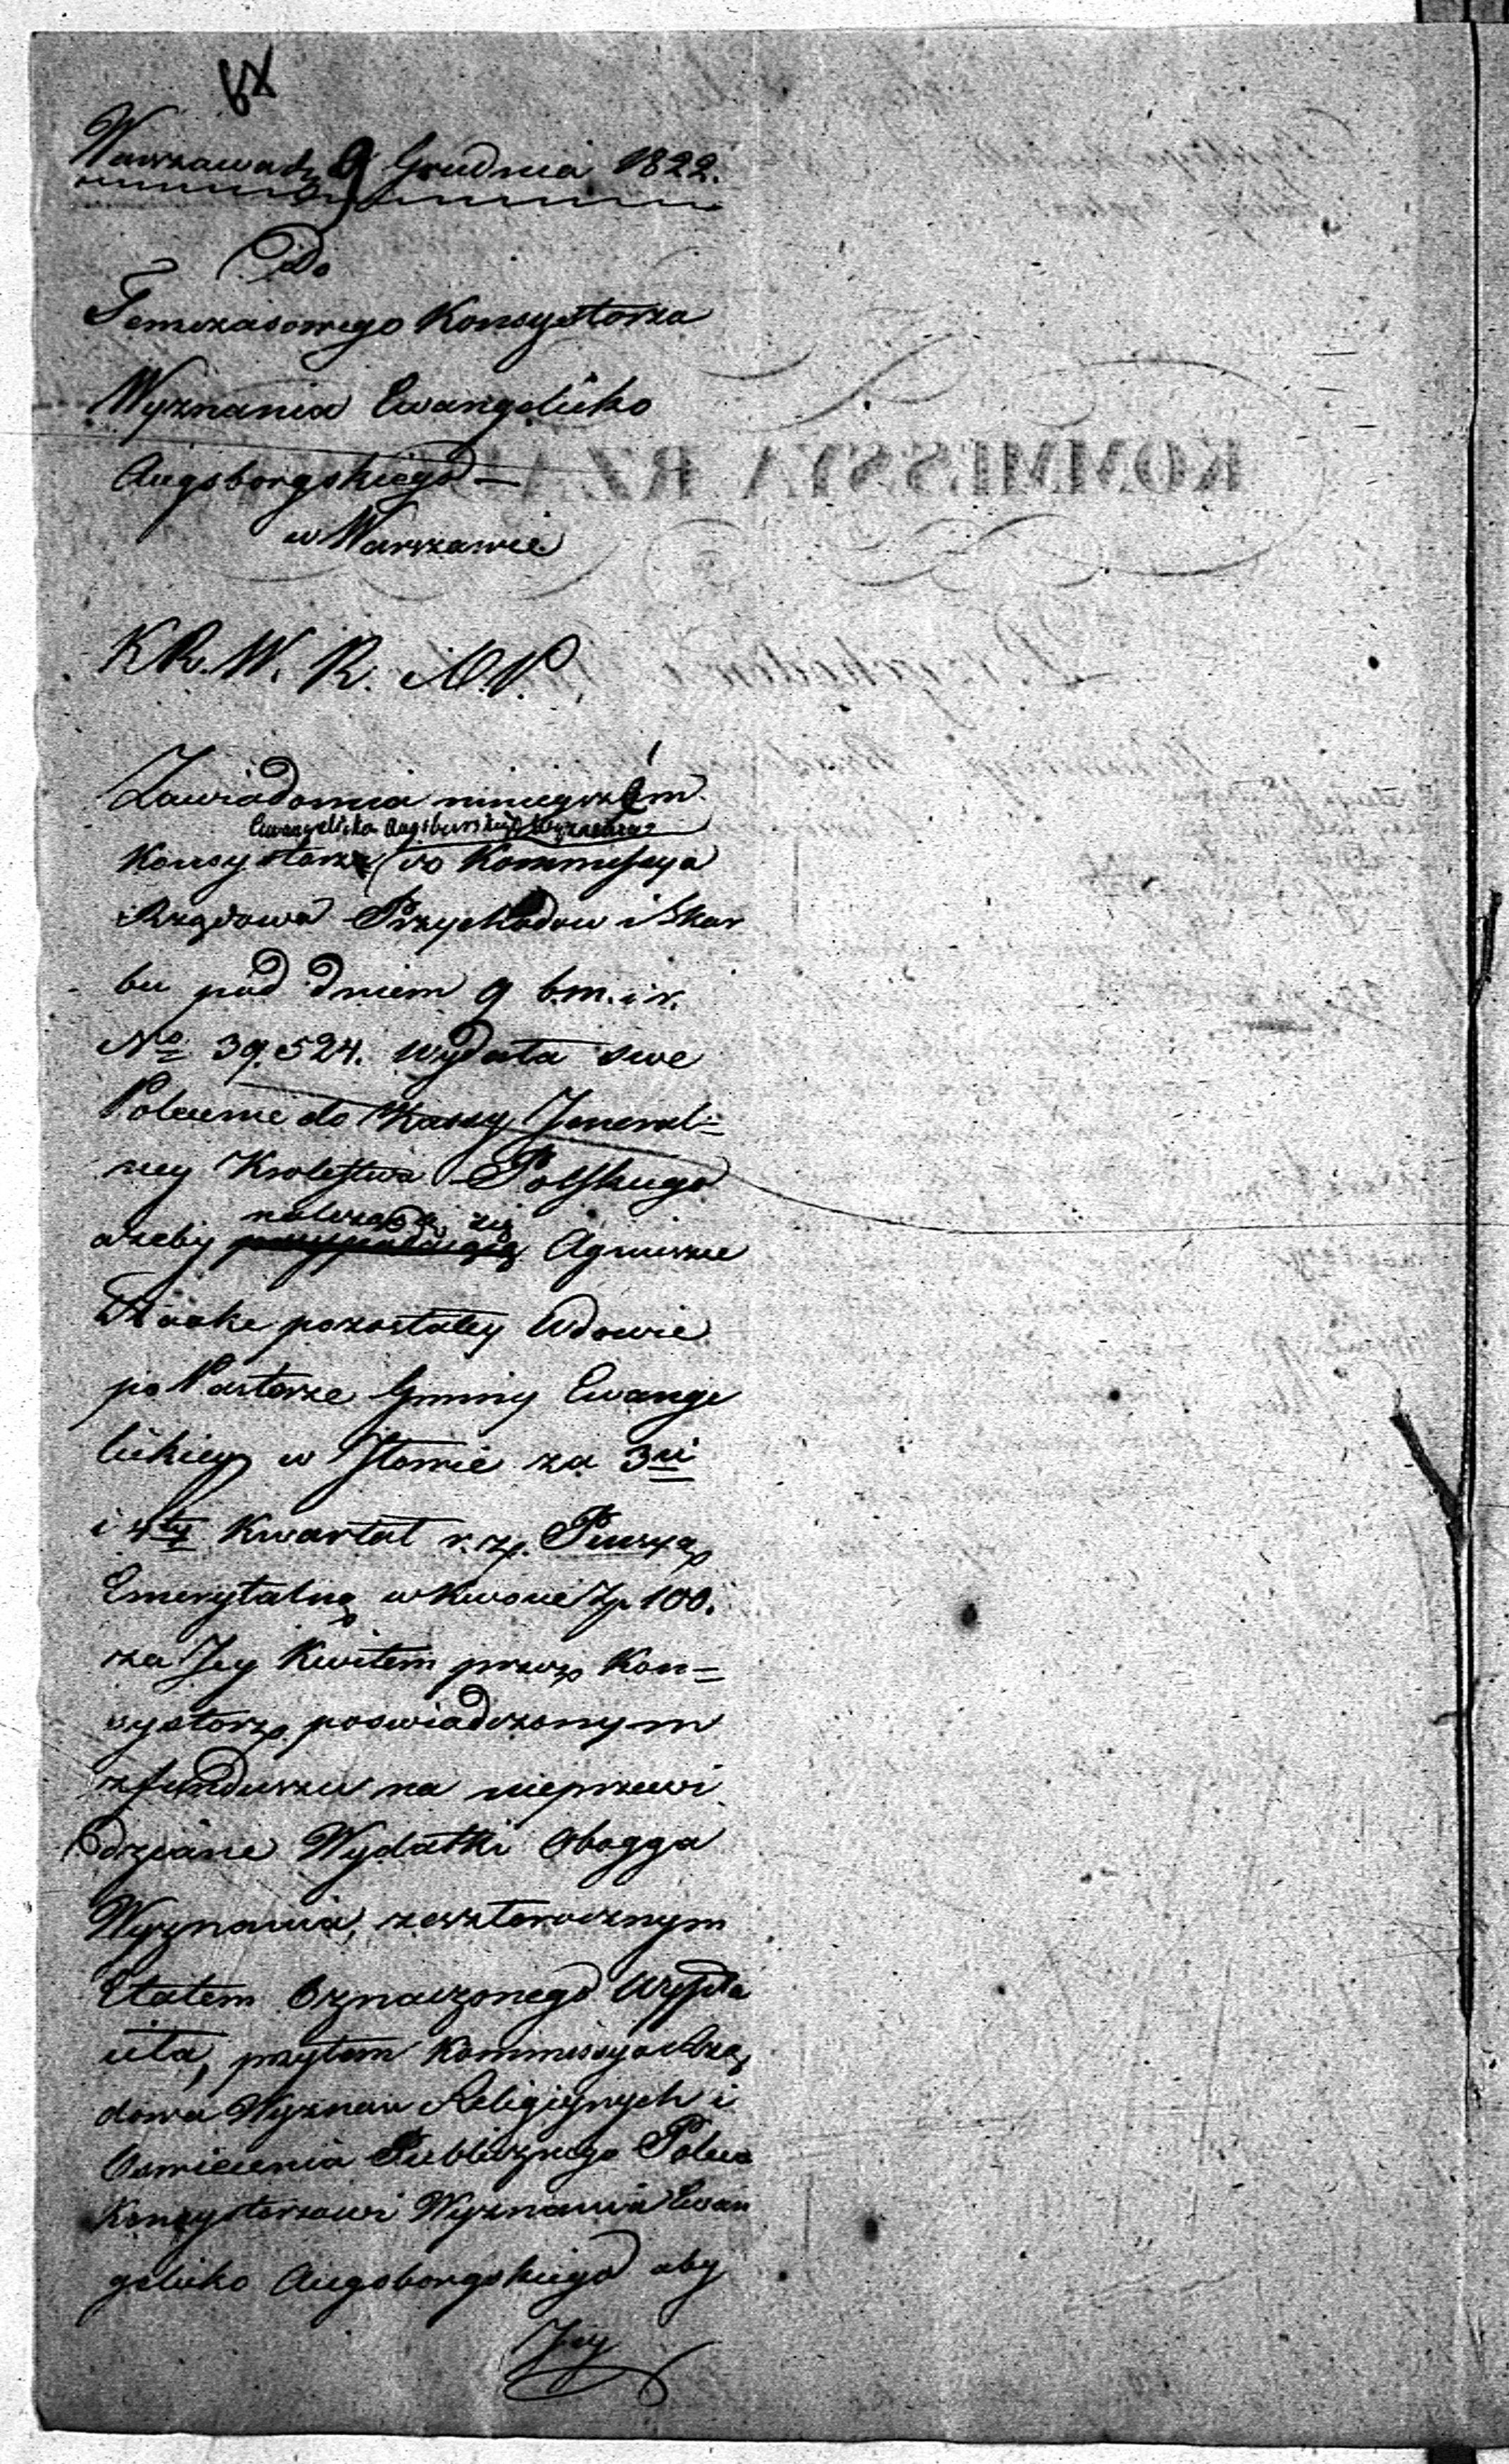 Warszawa d. 9 Grudnia 1822.
Do
Temczasowego Konsystorza
Wyznania Ewangelicko
Augsborgskiego —
w Warszawie
K R. W. R. i O. P.
Zawiadomia ninieyszém
Ewangelicko Augsburskiego Wyznania
Konsystorz iż Kommissya
Rządowa Przychodow i Skar
bu pod dniem 9 b.m. i r.
No 39,524. wydała swe
Polecenie do Kassy Jeneral=
ney Krolestwa Polskiego
należącą się
ażeby przypadaiącą Agnieszce
Haacke pozostałey Wdowie
po Pastorze Gminy Ewange
lickiey w Iłowie za 3ci
i 4ty Kwartał r. z. Pensyą
Emerytalną w kwocie Zp 100.
za Jey Kwitem przez Kon=
systorz poswiadczonym
z funduszu na nieprzewi
dziane Wydatki Obogga
Wyznania, zesztorocznym
Etatem Oznaczonego Wypła
ciła, przytem Kommissya Rzą
dowa Wyznan Religiynych i
Oswiecenia Publicznego Poleca
Konsystorzowi Wyznania Ewan
gelicko Augsborgskiego aby
Jey
KOMMISSYA RZĄ